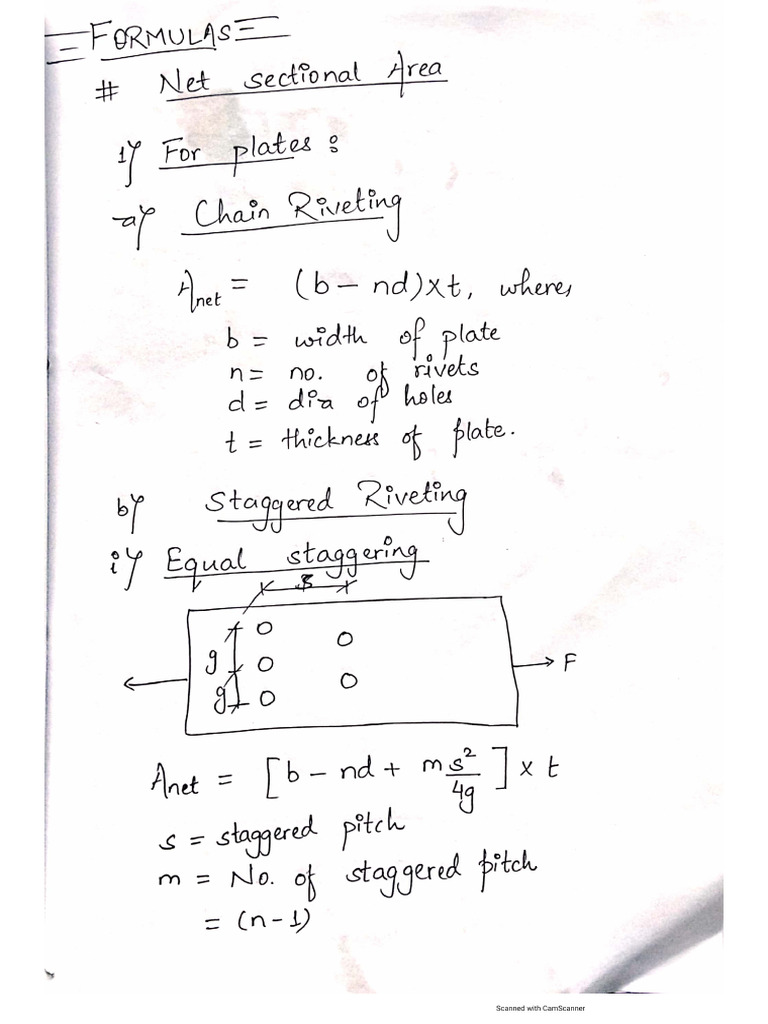 FORMULAS
# Net sectional Area
1) For plates :
a) Chain Riveting
Anet = (b - nd) x t, where,
b = width of plate
n = no. of rivets
d = dia of holes
t = thickness of plate.
b) Staggered Riveting
i) Equal staggering
s
g
g
F
Anet = [b - nd + m s²/4g] x t
s = staggered pitch
m = No. of staggered pitch
= (n-1)
Scanned with CamScanner